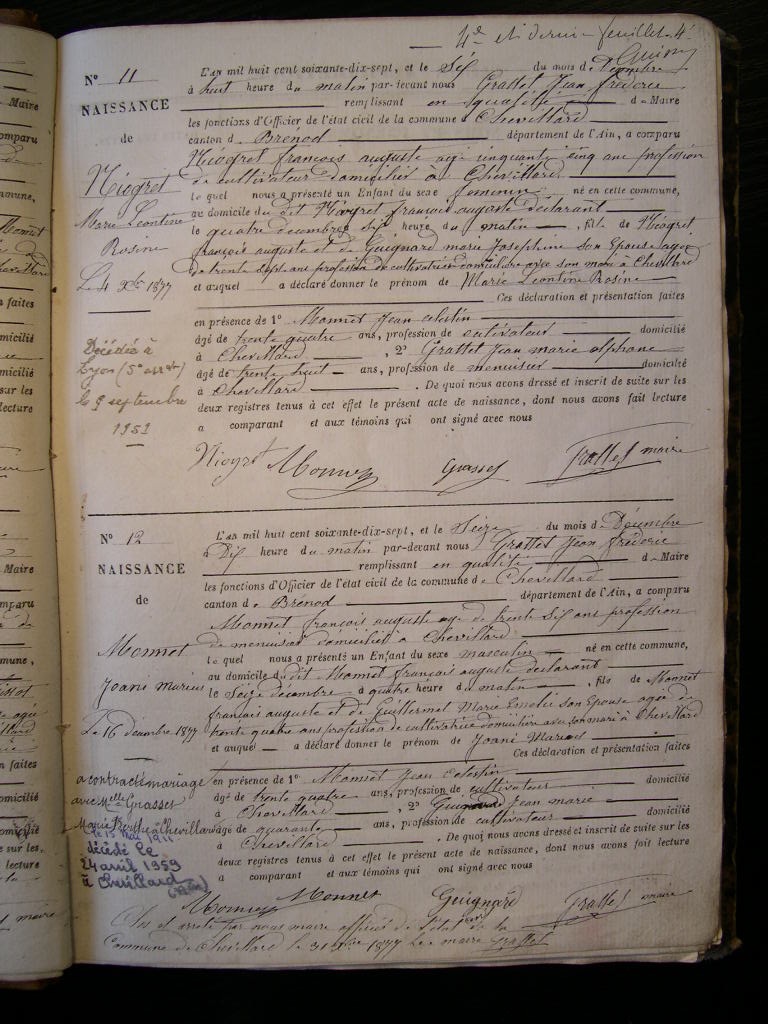 4e et dernier feuillet. 4e
N° 11
NAISSANCE
de
Niogret
Marie Léontine
Rosine
Le 4 Xbre 1877
Décédée à
Lyon (5e arrt)
le 9 septembre
1952
L'an mil huit cent soixante-dix-sept, et le Six du mois de Décembre
à huit heure du matin par-devant nous Grattet Jean frédéric
remplissant en qualité de Maire
les fonctions d'Officier de l'état civil de la commune de Chevillard
canton de Brénod département de l'Ain, a comparu
Niogret françois auguste agé cinquante cinq ans profession
de cultivateur domicilié à Chevillard
lequel nous a présenté un Enfant du sexe féminin né en cette commune,
au domicile du dit Niogret françois auguste déclarant
le quatre décembre heure du matin, fils de Niogret
françois auguste et de Guignard marie Josephine son Epouse agée
de trente sept ans profession de cultivatrice domiciliée avec son mari à Chevillard
et auquel a déclaré donner le prénom de Marie Léontine Rosine
Ces déclaration et présentation faites
en présence de 1° Monnet Jean célestin
âgé de trente quatre ans, profession de cultivateur domicilié
à Chevillard, 2° Grattet Jean marie alphonse
âgé de trente huit ans, profession de menuisier domicilié
à Chevillard. De quoi nous avons dressé et inscrit de suite sur les
deux registres tenus à cet effet le présent acte de naissance, dont nous avons fait lecture
a comparant et aux témoins qui ont signé avec nous
Niogret Monnet Grattet maire
N° 12
NAISSANCE
de
Monnet
Joanie Marius
Le 16 décembre 1877
a contracté mariage
avec Melle Grasset
Marie Berthe à Chevillard
le 13 mai 1911
décédé le
24 avril 1959
à Chevillard
(Ain)
L'an mil huit cent soixante-dix-sept, et le Seize du mois de Décembre
Dix heure du matin par-devant nous Grattet Jean frédéric
remplissant en qualité de Maire
les fonctions d'Officier de l'état civil de la commune de Chevillard
canton de Brénod département de l'Ain, a comparu
Monnet françois auguste age de trente Six ans profession
de menuisier domicilié à Chevillard
lequel nous a présenté un Enfant du sexe masculin né en cette commune,
au domicile du dit Monnet françois auguste déclarant
le Seize décembre à quatre heure du matin, fils de Monnet
françois auguste et de Guillermet Marie Emélie son Epouse agée de
trente quatre ans profession de cultivatrice domiciliée avec son mari à Chevillard
et auquel a déclaré donner le prénom de Joanie Marius
Ces déclaration et présentation faites
en présence de 1° Monnet Jean Célestin
âgé de trente quatre ans, profession de cultivateur domicilié
à Chevillard, 2° Guignard Jean marie
âgé de quarante ans, profession de cultivateur domicilié
à Chevillard. De quoi nous avons dressé et inscrit de suite sur les
deux registres tenus à cet effet le présent acte de naissance, dont nous avons fait lecture
a comparant et aux témoins qui ont signé avec nous
Monnet Monnet Guignard Grattet maire
Clos et arrêté par nous maire officier de l'état civil de la
Commune de Chevillard le 31 Xbre 1877 Le maire Grattet